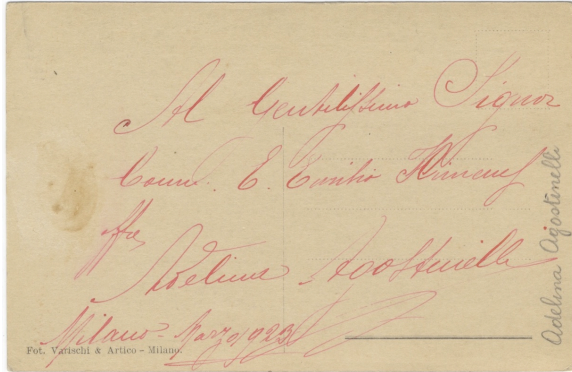 Al Gentilissimo Signor
Comm. E. Emilio
Adelina Agostinelli
Milano - Marzo 1923
Fot. Varischi & Artico - Milano.
Adelina Agostinelli